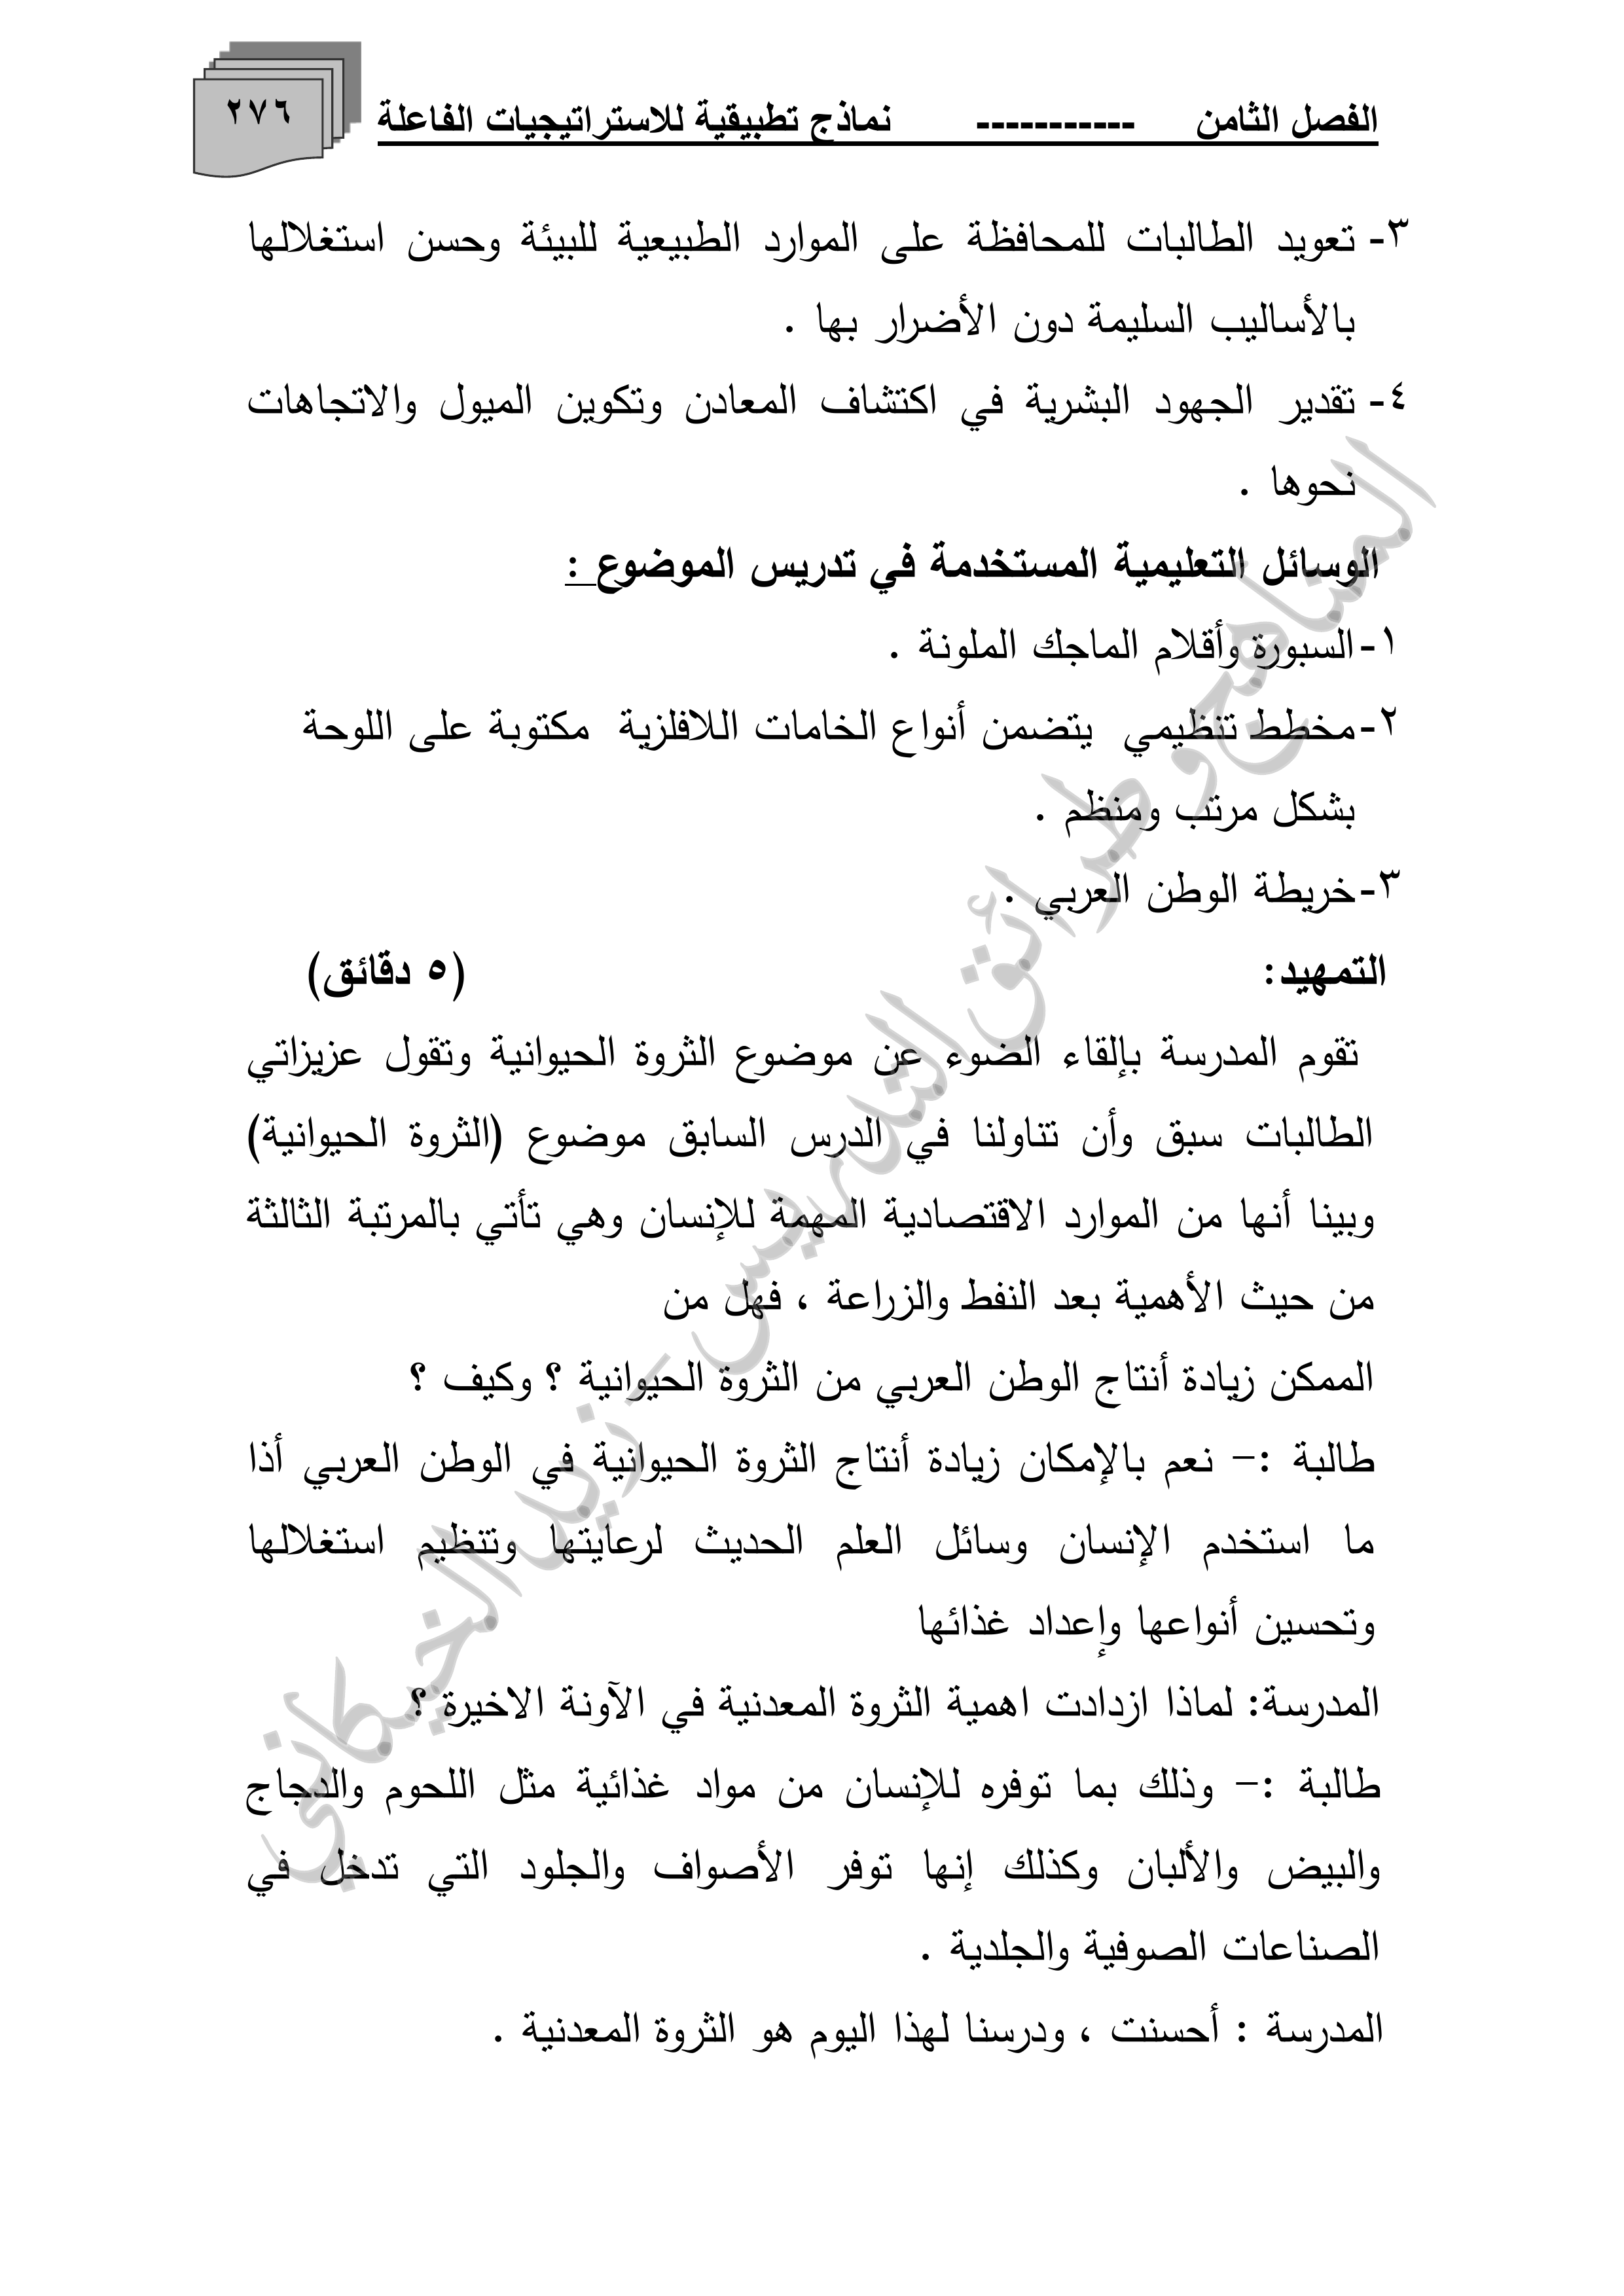 الفصل الثامن ----------- نماذج تطبيقية للاستراتيجيات الفاعلة
٢٧٦
٣- تعويد الطالبات للمحافظة على الموارد الطبيعية للبيئة وحسن استغلالها
بالأساليب السليمة دون الأضرار بها .
٤- تقدير الجهود البشرية في اكتشاف المعادن وتكوين الميول والاتجاهات
نحوها .
الوسائل التعليمية المستخدمة في تدريس الموضوع :
١- السبورة وأقلام الماجك الملونة .
٢- مخطط تنظيمي يتضمن أنواع الخامات اللافلزية مكتوبة على اللوحة
بشكل مرتب ومنظم .
٣- خريطة الوطن العربي .
التمهيد: (٥ دقائق)
تقوم المدرسة بإلقاء الضوء عن موضوع الثروة الحيوانية وتقول عزيزاتي
الطالبات سبق وأن تناولنا في الدرس السابق موضوع (الثروة الحيوانية)
وبينا أنها من الموارد الاقتصادية المهمة للإنسان وهي تأتي بالمرتبة الثالثة
من حيث الأهمية بعد النفط والزراعة ، فهل من
الممكن زيادة أنتاج الوطن العربي من الثروة الحيوانية ؟ وكيف ؟
طالبة :– نعم بالإمكان زيادة أنتاج الثروة الحيوانية في الوطن العربي أذا
ما استخدم الإنسان وسائل العلم الحديث لرعايتها وتنظيم استغلالها
وتحسين أنواعها وإعداد غذائها
المدرسة: لماذا ازدادت اهمية الثروة المعدنية في الآونة الاخيرة ؟
طالبة :– وذلك بما توفره للإنسان من مواد غذائية مثل اللحوم والدجاج
والبيض والألبان وكذلك إنها توفر الأصواف والجلود التي تدخل في
الصناعات الصوفية والجلدية .
المدرسة : أحسنت ، ودرسنا لهذا اليوم هو الثروة المعدنية .
المناهج وطرائق التدريس - زيد الخيكاني